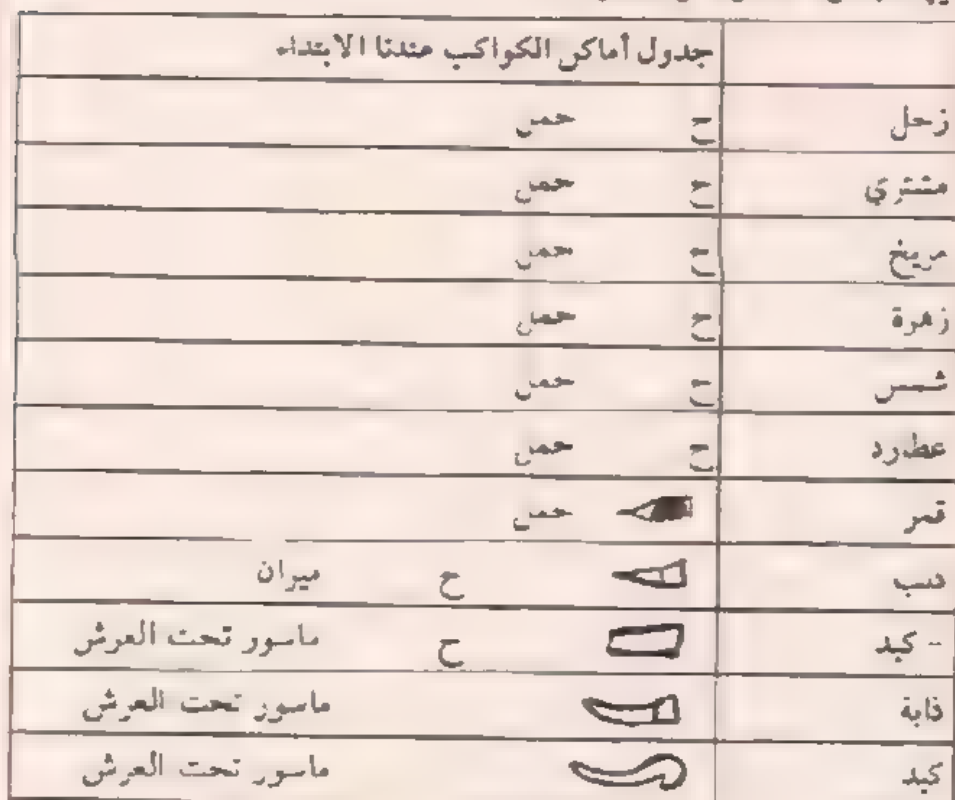 جدول أماكن الكواكب عندنا الابتداء
زحل ح حمل
مشتري ح حمل
مريخ ح حمل
زهرة ح حمل
شمس ح حمل
عطارد ح حمل
قمر حمل
ذنب ح ميزان
كيد ح ماسور تحت العرش
ماسور تحت العرش
كيد ماسور تحت العرش